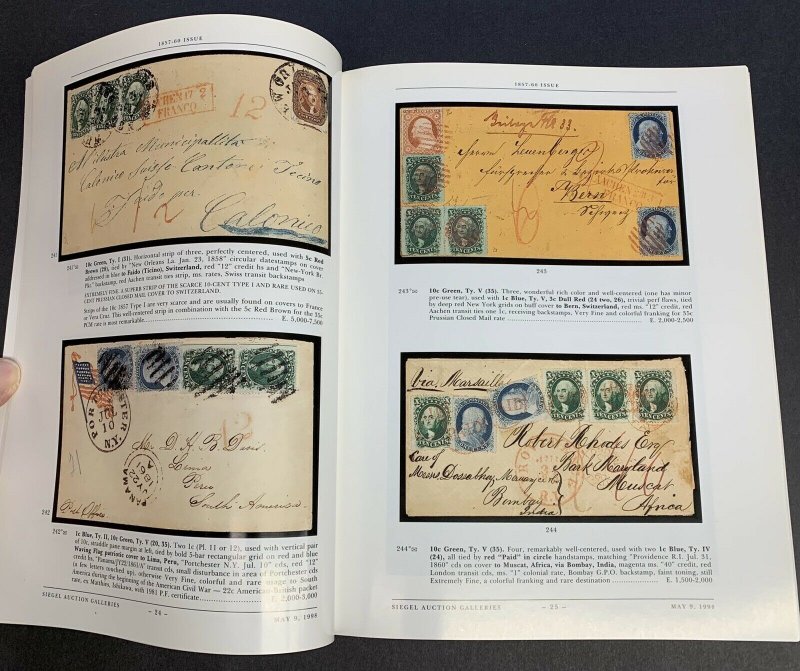 1857-60 ISSUE
AACHEN 17 2
FRANCO
12
Municipalità
Colonico Suisse Canton Ticino
Faido per
Colonico
241
241°SS 10c Green, Ty. I (31). Horizontal strip of three, perfectly centered, used with 5c Red
Brown (29), tied by "New Orleans La. Jan. 23, 1858" circular datestamps on cover
addressed in blue to Faido (Ticino), Switzerland, red "12" credit hs and "New-York Br.
Pkt." backstamp, red Aachen transit ties strip, ms. rates, Swiss transit backstamps
EXTREMELY FINE. A SUPERB STRIP OF THE SCARCE 10-CENT TYPE I AND RARE USED ON 35-
CENT PRUSSIAN CLOSED MAIL COVER TO SWITZERLAND.
Strips of the 10c 1857 Type I are very scarce and are usually found on covers to France
or Vera Cruz. This well-centered strip in combination with the 5c Red Brown for the 35c
PCM rate is most remarkable. E. 5,000-7,500
JUL
10
N.Y.
Mr. D. A. B. Davis.
Lima
Peru
South American
PANAMA
Post Office
242
242°SS 1c Blue, Ty. II, 10c Green, Ty. V (20, 35). Two 1c (Pl. 11 or 12), used with vertical pair
of 10c, straddle pane margin at left, tied by bold 3-bar rectangular grid on red and blue
Waving Flag patriotic cover to Lima, Peru, "Portchester N.Y. Jul. 10" cds, red "12"
transit cds, small disturbance in area of Portchester cds
(a few letters touched up), otherwise Very Fine, colorful and rare usage to South
America during the beginning of the American Civil War — 22c American-British packet
rate, ex Matthies, Ishikawa, with 1981 P.F. certificate E. 2,000-3,000
SIEGEL AUCTION GALLERIES
— 24 —
MAY 9, 1998
1857-60 ISSUE
Herrn Leuenberger
Fürsprecher
Bern
Schweiz
AACHEN
FRANCO
243
243°SS 10c Green, Ty. V (35). Three, wonderful rich color and well-centered (one has minor
pre-use tear), used with 1c Blue, Ty. V, 3c Dull Red (24 two, 26), trivial perf flaws, tied
by deep red New York grids on buff cover to Bern, Switzerland, red ms. "12" credit, red
Aachen transit ties one 1c, receiving backstamps, Very Fine and colorful franking for 35c
Prussian Closed Mail rate E. 2,000-2,500
Via. Marseille
TEN CENTS TEN CENTS TEN CENTS TEN CENTS
Robert Rhodes Esq
Care of
Bark Maryland
Messrs
Muscat
Bombay
Africa
India
244
244°SS 10c Green, Ty. V (35). Four, remarkably well-centered, used with two 1c Blue, Ty. IV
(24), all tied by red "Paid" in circle handstamps, matching "Providence R.I. Jul. 31,
1860" cds on cover to Muscat, Africa, via Bombay, India, magenta ms. "40" credit, red
London transit cds, ms. "1" colonial rate, Bombay G.P.O. backstamp, faint toning, still
Extremely Fine, a colorful franking and rare destination E. 1,500-2,000
SIEGEL AUCTION GALLERIES
— 25 —
MAY 9, 1998